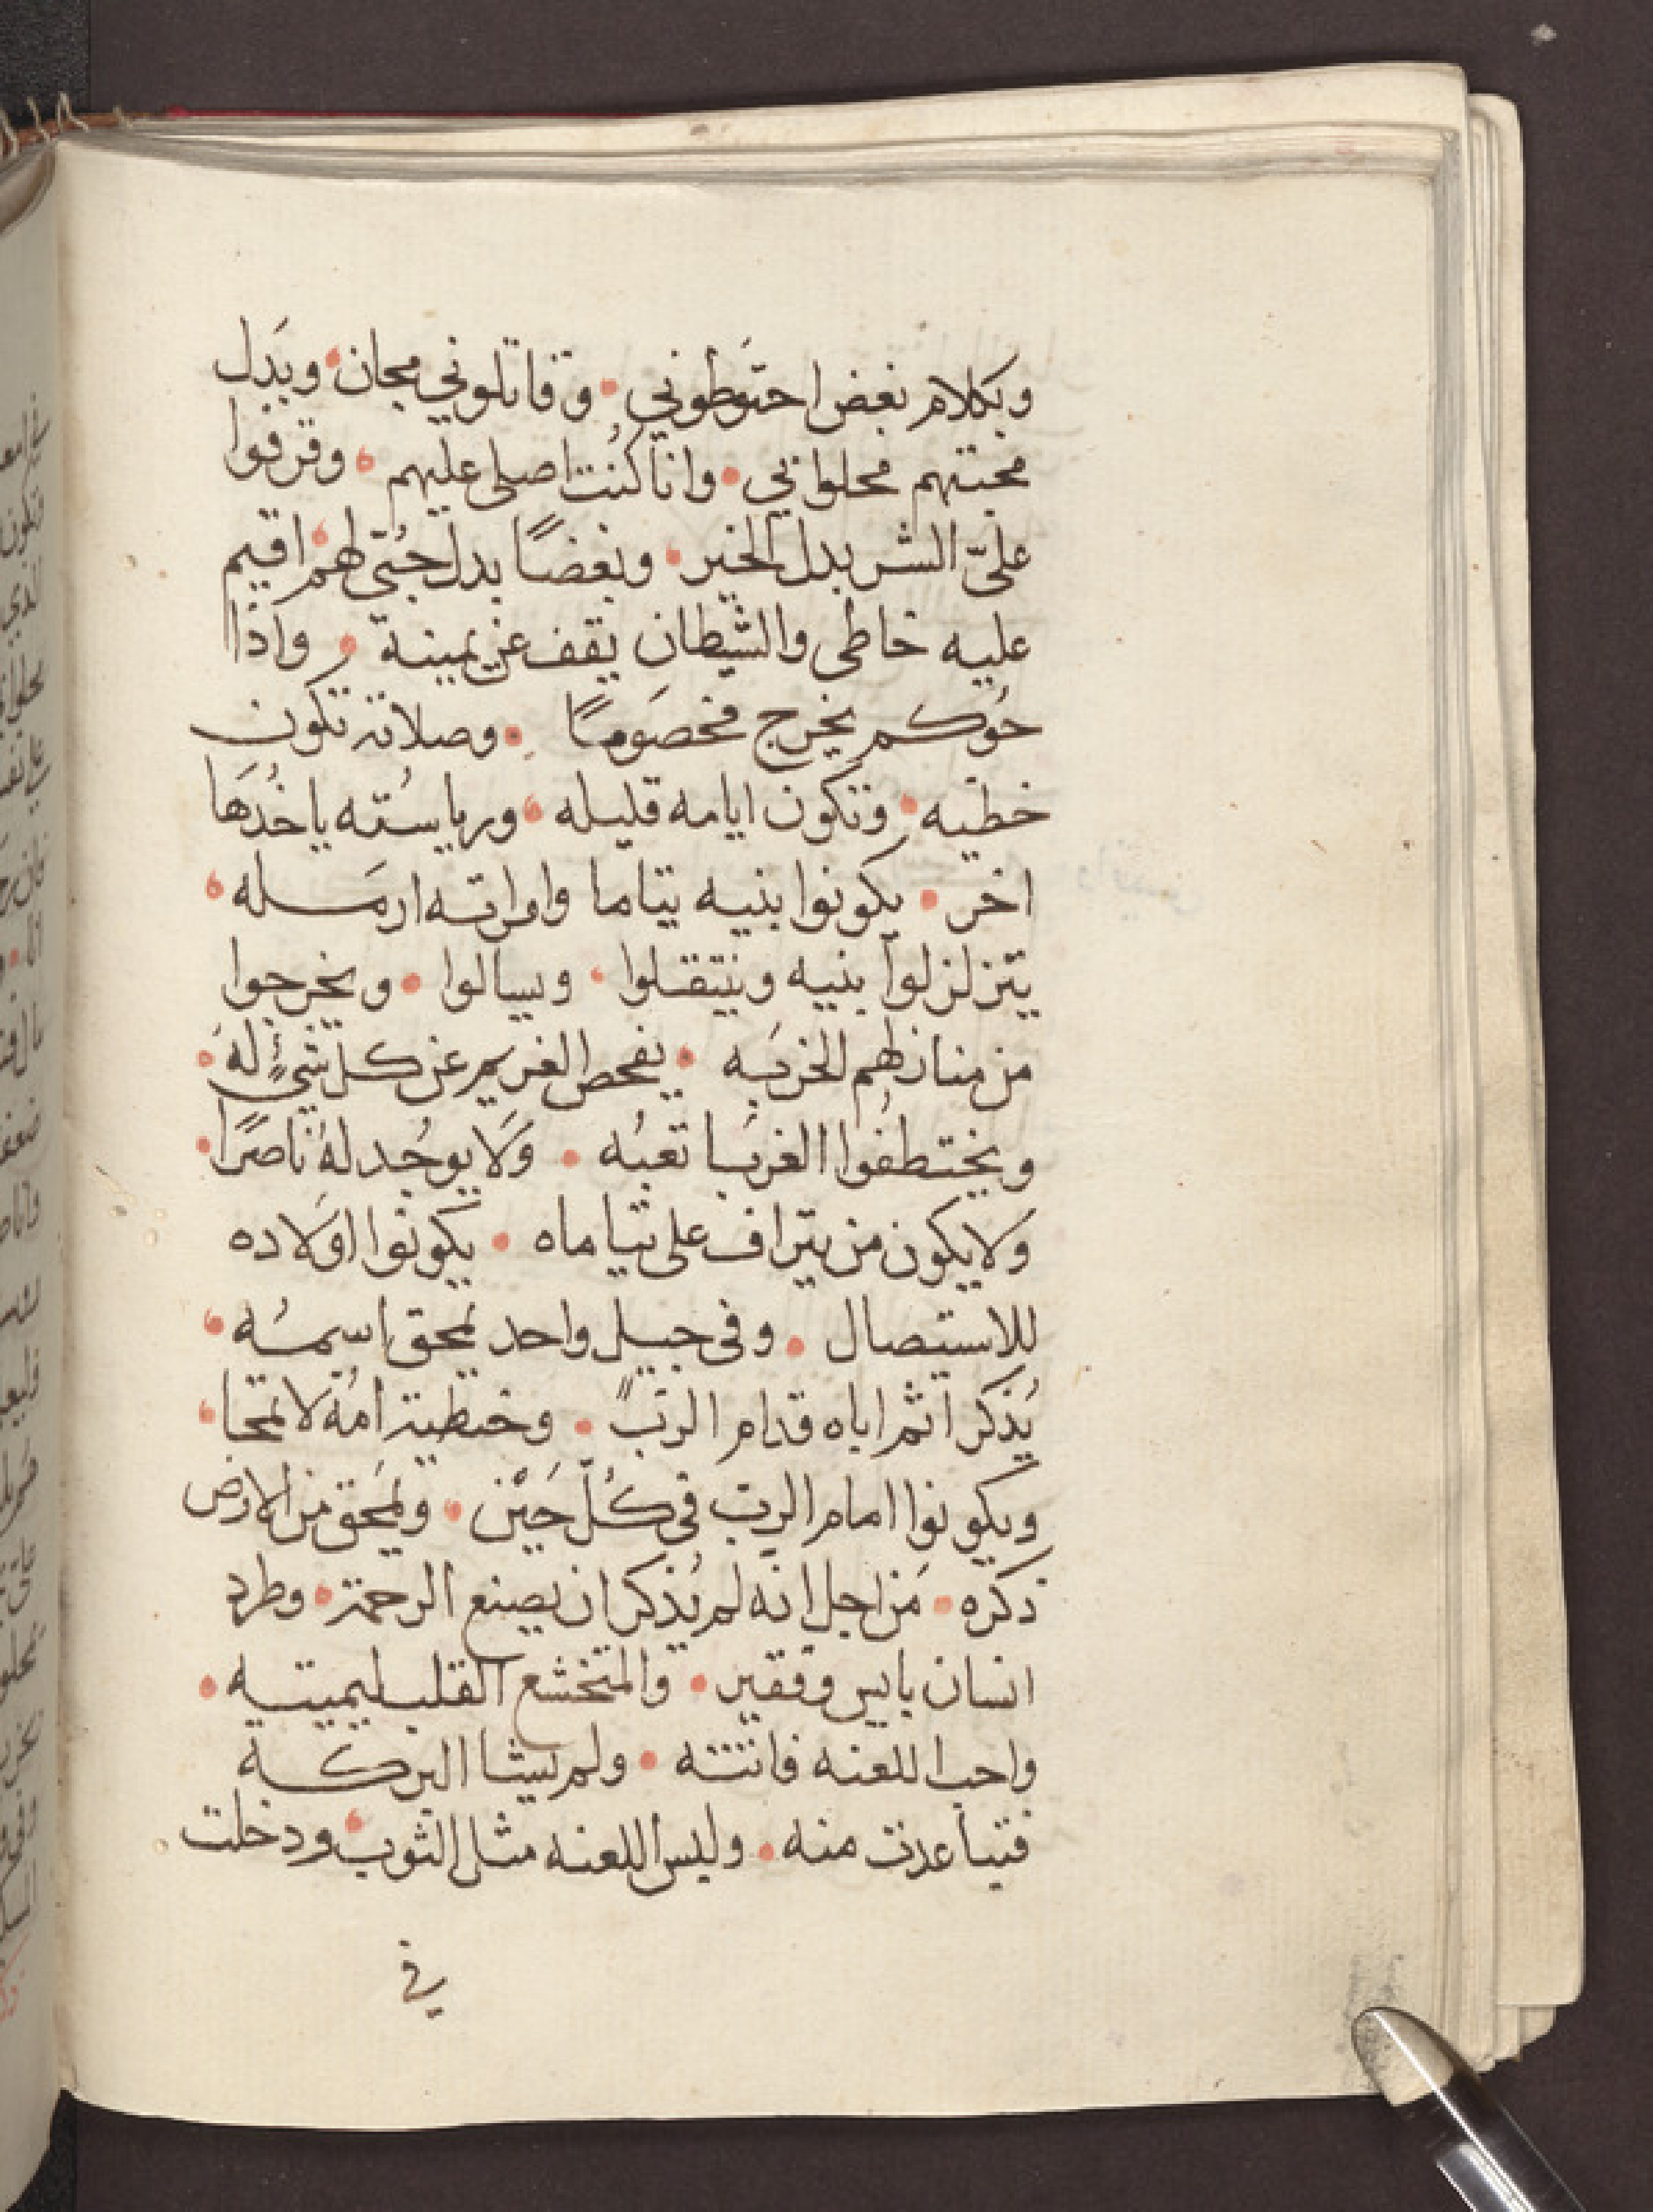 وبكلام بغض احتوطوني • وقاتلوني مجان • وبَدل
محبتهم محلوا بي • وانا كنت اصلي عليهم • وقرفوا
عليّ الشر بدل الخير • وبغضًا بدل حُبّي لهم • اقيم
عليه خاطي والشيطان يقف عن يمينة • واذا
حُوكم يخرج مخصَومًا • وصلاته تكون
خطيه • وتكون ايامه قليله • ورياسُته ياخُدَها
اخر • يكونوا بنيه يتاما وامراته ارمَله •
يتزلزلوا بنيه وينتقلوا • ويسالوا • ويخرجوا
من منازلهم الخربَه • يفحص الغريم عن كل شيءٍ لهُ •
ويختطفُوا الغربُا تعبُه • وَلا يوجُد لهُ ناصرًا •
وَلا يكون من يتراف على يتاماه • يكونوا اوَلاده
للاستيصال • وفي جيل واحد يمحق اسمُه •
يُذكر اثم اباه قدام الربّ • وخطية امُه لا تمحا •
ويكونوا امام الرب في كُلّ حَيْن • ويمحَق من الارض
ذكره • مَن اجل انه لم يُذكر ان يصنع الرحمة • وطرد
انسان بايس وفقير • والمتخشع القلب ليميته •
واحب اللعنه فاتته • ولم يشا البركة
فتباعدت منه • ولبس اللعنه مثل الثوب • ودخلت
في